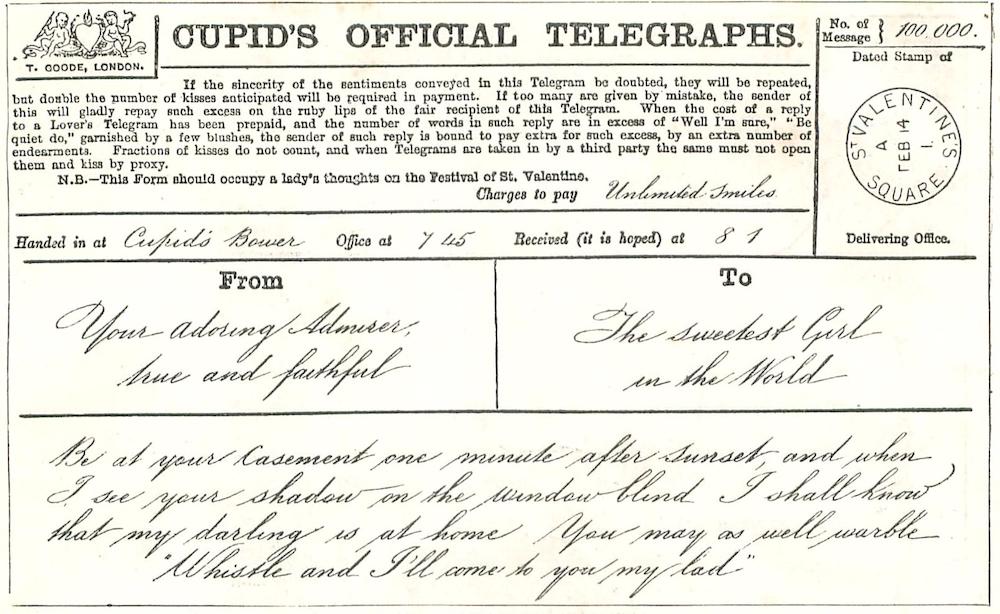 T. GOODE, LONDON.
CUPID'S OFFICIAL TELEGRAPHS.
No. of
Message } 100,000.
If the sincerity of the sentiments conveyed in this Telegram be doubted, they will be repeated,
but double the number of kisses anticipated will be required in payment. If too many are given by mistake, the sender of
this will gladly repay such excess on the ruby lips of the fair recipient of this Telegram. When the cost of a reply
to a Lover's Telegram has been prepaid, and the number of words in such reply are in excess of "Well I'm sure," "Be
quiet do," garnished by a few blushes, the sender of such reply is bound to pay extra for such excess, by an extra number of
endearments. Fractions of kisses do not count, and when Telegrams are taken in by a third party the same must not open
them and kiss by proxy.
N.B.—This Form should occupy a lady's thoughts on the Festival of St. Valentine.
Charges to pay Unlimited Smiles
Dated Stamp of
ST VALENTINE'S
A
FEB 14
1.
SQUARE
Delivering Office.
Handed in at Cupid's Bower Office at 7 45 Received (it is hoped) at 8 1
From
Your adoring Admirer,
true and faithful
To
The sweetest Girl
in the World
Be at your Casement one minute after sunset, and when
I see your shadow on the window blind I shall know
that my darling is at home You may as well warble
"Whistle and I'll come to you my lad"